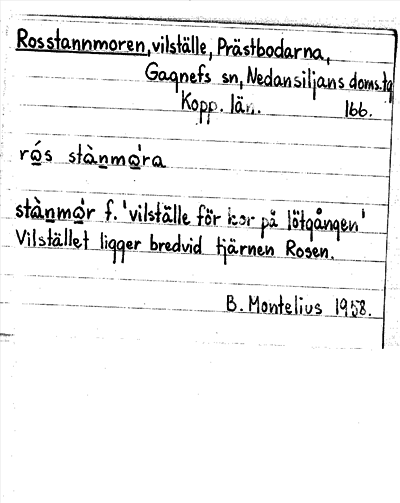 Rosstannmoren, vilställe, Prästbodarna,
Gagnefs sn, Nedansiljans doms.tg
Kopp. län. 166.
rǫ́s stànmǫ̀ra
stànmǫ̀r f. 'vilställe för kor på lötgången'
Vilstället ligger bredvid tjärnen Rosen.
B. Montelius 1958.